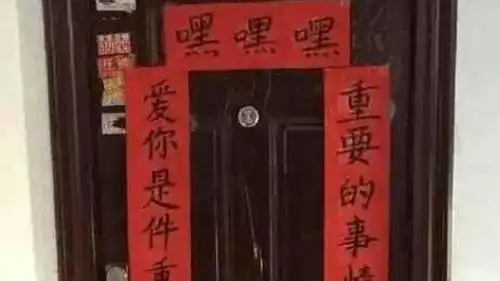 嘿嘿嘿
爱你是件重
重要的事情